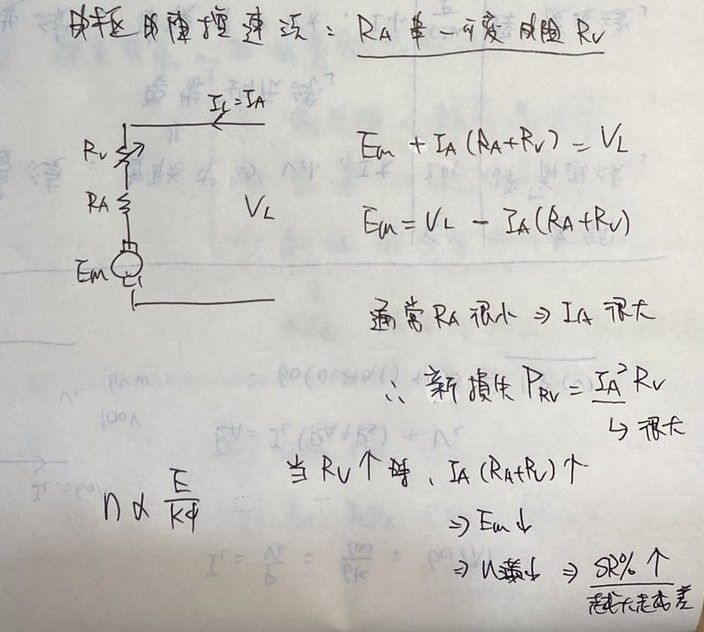 電樞電阻控速法：RA串一可變電阻 Rv
IL=IA
Rv
RA
VL
Em
Em + IA (RA+Rv) = VL
Em = VL - IA (RA+Rv)
通常 RA 很小 ⇒ IA 很大
∴ 新損失 PRv = IA² Rv
↳ 很大
当 Rv ↑ 時、IA (RA+Rv) ↑
n ∝ E/Kφ
⇒ Em ↓
⇒ n ↓ ⇒ SR% ↑
越大越差